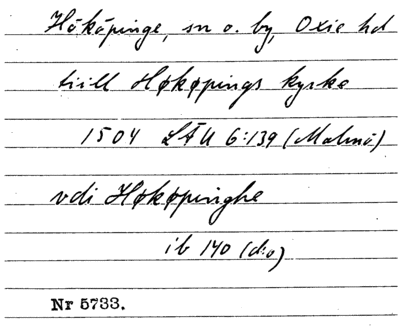 Hököpinge, sn o. by, Oxie hd
tiill Høkøpings kyrke
1504 LÅU 6:139 (Malmö)
vdi Høkøpinghe
ib 140 (d:o)
Nr 5733.